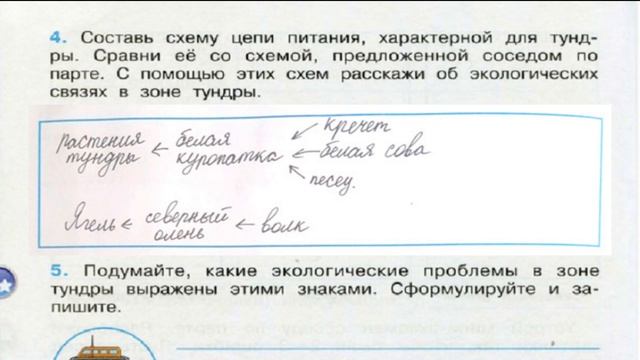 4. Составь схему цепи питания, характерной для тунд-
ры. Сравни её со схемой, предложенной соседом по
парте. С помощью этих схем расскажи об экологических
связях в зоне тундры.
растения тундры ← белая куропатка ← кречет
← белая сова
← песец.
Ягель ← северный олень ← волк
5. Подумайте, какие экологические проблемы в зоне
тундры выражены этими знаками. Сформулируйте и за-
пишите.